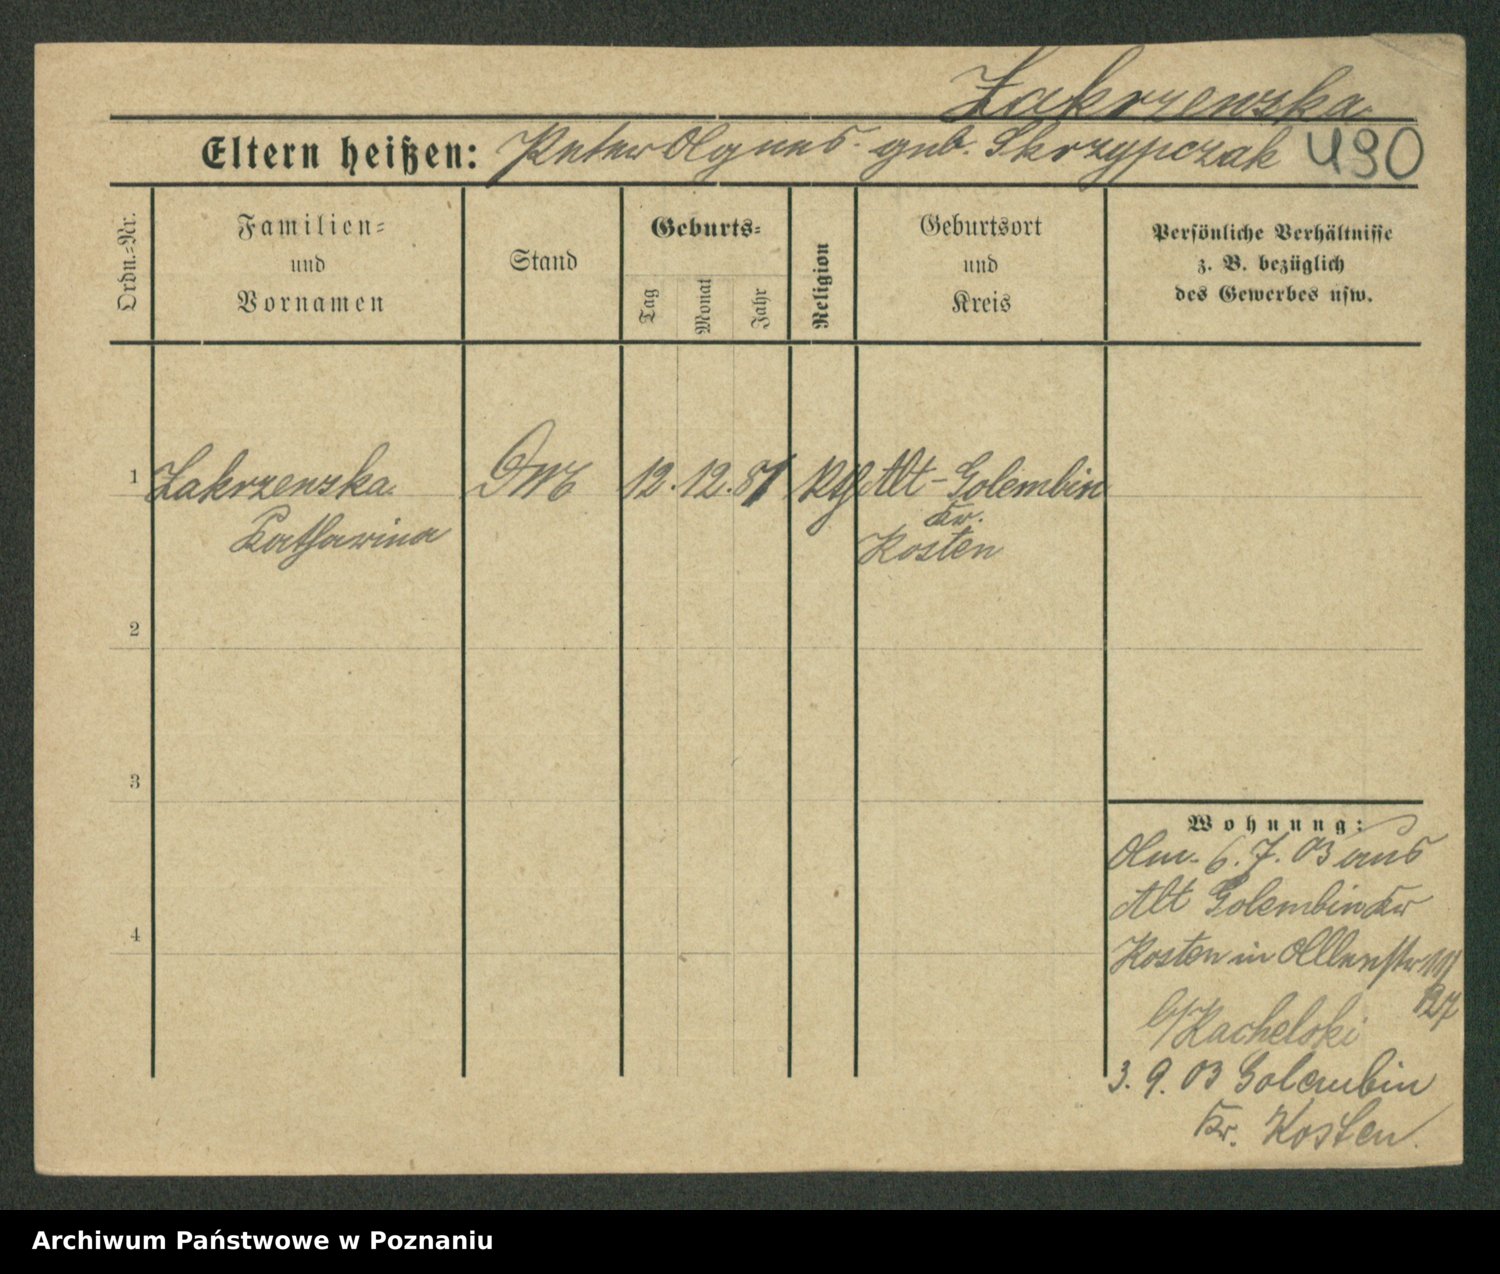 Zakrzewska
Eltern heißen: Peter Agnes geb. Skrzypczak 490
Ordn.=Nr.
Familien=
und
Vornamen
Stand
Geburts=
Tag
Monat
Jahr
Religion
Geburtsort
und
Kreis
Persönliche Verhältnisse
z. B. bezüglich
des Gewerbes usw.
1 Zakrzewska 12. 12. 81 Kth Alt-Golembin
Katharina
Kr.
Kosten
2
3
4
Wohnung:
Am. 6. 7. 03 aus
Alt Golembin Kr
Kosten in
b/ Kachelski
3. 9. 03 Golembin
Kr. Kosten.
Archiwum Państwowe w Poznaniu